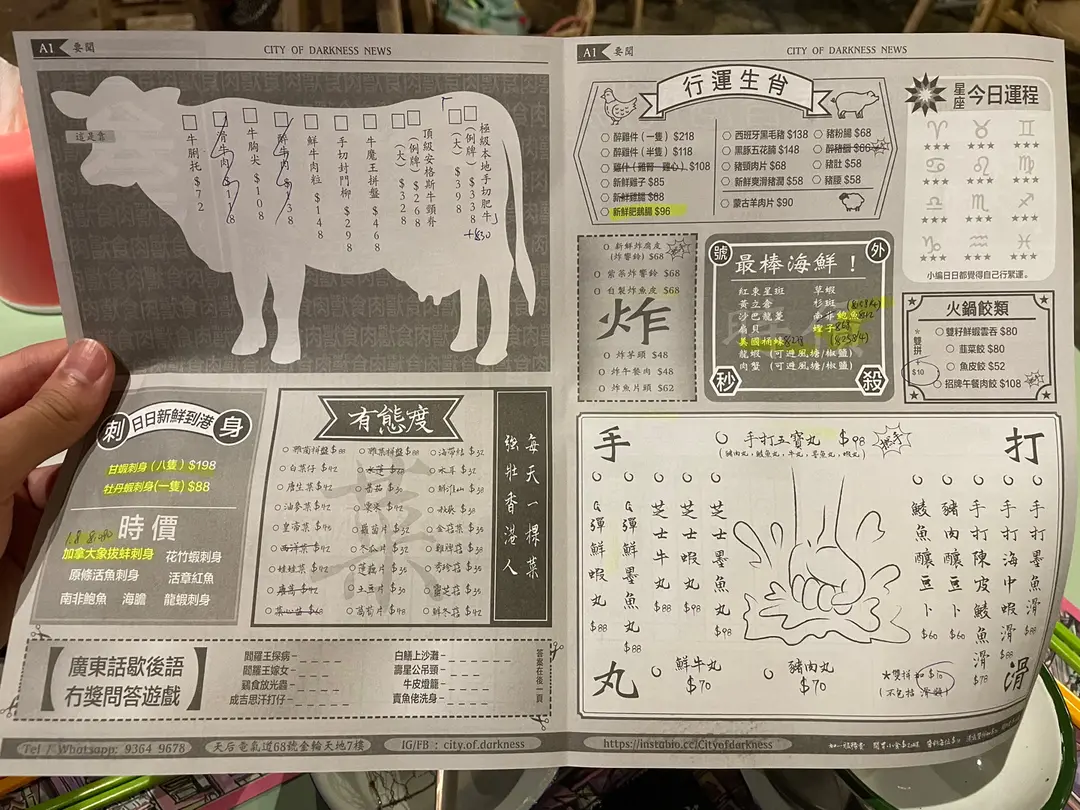 A1 要聞
CITY OF DARKNESS NEWS
這是書
極級本地手切肥牛」
(例牌) $338 +$30
(大) $398
頂級安格斯牛頸脊
(例牌) $268
(大) $328
牛魔王拼盤 $468
手切封門柳 $298
鮮牛肉粒 $148
鮮牛肉 $138
牛胸尖 $108
滑牛肉
牛脷托 $72
刺身
日日新鮮到港
甘蝦刺身 (八隻) $198
牡丹蝦刺身(一隻) $88
時價
加拿大象拔蚌刺身
花竹蝦刺身
原條活魚刺身
活章紅魚
南非鮑魚
海膽
龍蝦刺身
有態度
雜菌拼盤 $88
雜菜拼盤 $88
海帶結 $32
白菜仔 $42
水蓮 $28
木耳 $32
唐生菜 $42
蕃茄 $30
鮮淮山 $38
油麥菜 $42
炆米 $42
秋葵 $38
皇帝菜 $48
蘿蔔片 $32
金菇菜 $38
西洋菜 $42
冬瓜片 $32
雞髀菇 $38
娃娃菜 $42
蓮藕片 $38
秀珍菇 $38
土豆片 $30
靈芝菇 $38
菜心苗 $48
萵筍片 $48
鮮冬菇 $42
菜
每天一棵菜
強壯香港人
廣東話歇後語
冇獎問答遊戲
閻羅王探病-
閻羅王嫁女-
鷄食放光蟲-
成吉思汗打仔-
白鱔上沙灘-
壽星公吊頸-
牛皮燈籠-
賣魚佬洗身-
答案在後一頁
Tel / Whatsapp: 9364 9678
天后電氣道68號金輪天地7樓
IG/FB : city.of.darkness
A1 要聞
CITY OF DARKNESS NEWS
行運生肖
醉雞件 (一隻) $218
醉雞件 (半隻) $118
雞什 (雞腎一雞心) $108
新鮮雞子 $85
新鮮雞腸 $68
新鮮肥鵝腸 $96
西班牙黑毛豬 $138
黑豚五花腩 $148
豬頸肉片 $68
新鮮爽滑豬潤 $58
豬粉腸 $68
醉豬
豬肚 $58
豬腰 $58
蒙古羊肉片 $90
星座今日運程
小編日日都覺得自己行緊運。
新鮮炸腐皮
(炸響鈴) $68
紫菜炸響鈴 $68
自製炸魚皮 $68
炸
炸芋頭 $48
炸午餐肉 $48
炸魚片頭 $62
號外
最棒海鮮!
紅東星斑
草蝦
黃立倉
杉斑
沙巴龍躉
南非鮑魚
扇貝
蟶子
美國桶蠔
龍蝦 (可避風塘/椒鹽)
肉蟹 (可避風塘/椒鹽)
秒殺
火鍋餃類
雙籽鮮蝦雲吞 $80
韮菜餃 $80
魚皮餃 $52
招牌午餐肉餃 $108
*雙拼+$10
手打
丸滑
手打五寶丸 $98
(豬肉丸, 鯪魚丸, 牛丸, 墨魚丸, 蝦丸)
手打墨魚滑 $88
手打海中蝦滑 $88
手打陳皮鯪魚滑 $78
豬肉釀豆卜 $60
鯪魚釀豆卜 $60
芝士墨魚丸 $98
芝士蝦丸 $98
芝士牛丸 $88
Q彈鮮墨魚丸 $88
Q彈鮮蝦丸 $88
鮮牛丸 $70
豬肉丸 $70
*雙拼加$10
(不包括滑類)
https://instabio.cc/Cityofdarkness
加一服務費